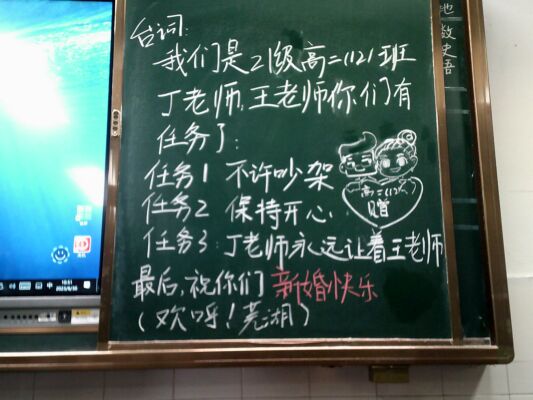 台词:
我们是21级高二(12)班
丁老师,王老师你们有
任务了:
任务1 不许吵架
任务2 保持开心
任务3:丁老师永远让着王老师
最后,祝你们 新婚快乐
(欢呼!芜湖)
高二(12)
赠
地
数史语
中
10:51